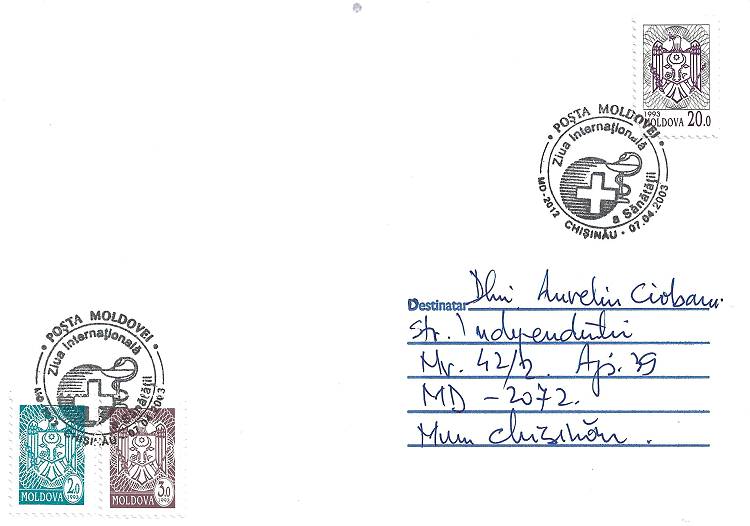 1993
MOLDOVA 20.0
• POȘTA MOLDOVEI •
Ziua Internațională
a Sănătății
MD-2012 CHIȘINĂU • 07.04.2003
Destinatar Dlui Aureliu Ciobanu.
str. Independenții
Nr. 42/2. Ap. 39
MD - 2072.
Mun Chișinău.
• POȘTA MOLDOVEI •
Ziua Internațională
a Sănătății
CHIȘINĂU
2.0
1993
MOLDOVA
3.0
1993
MOLDOVA